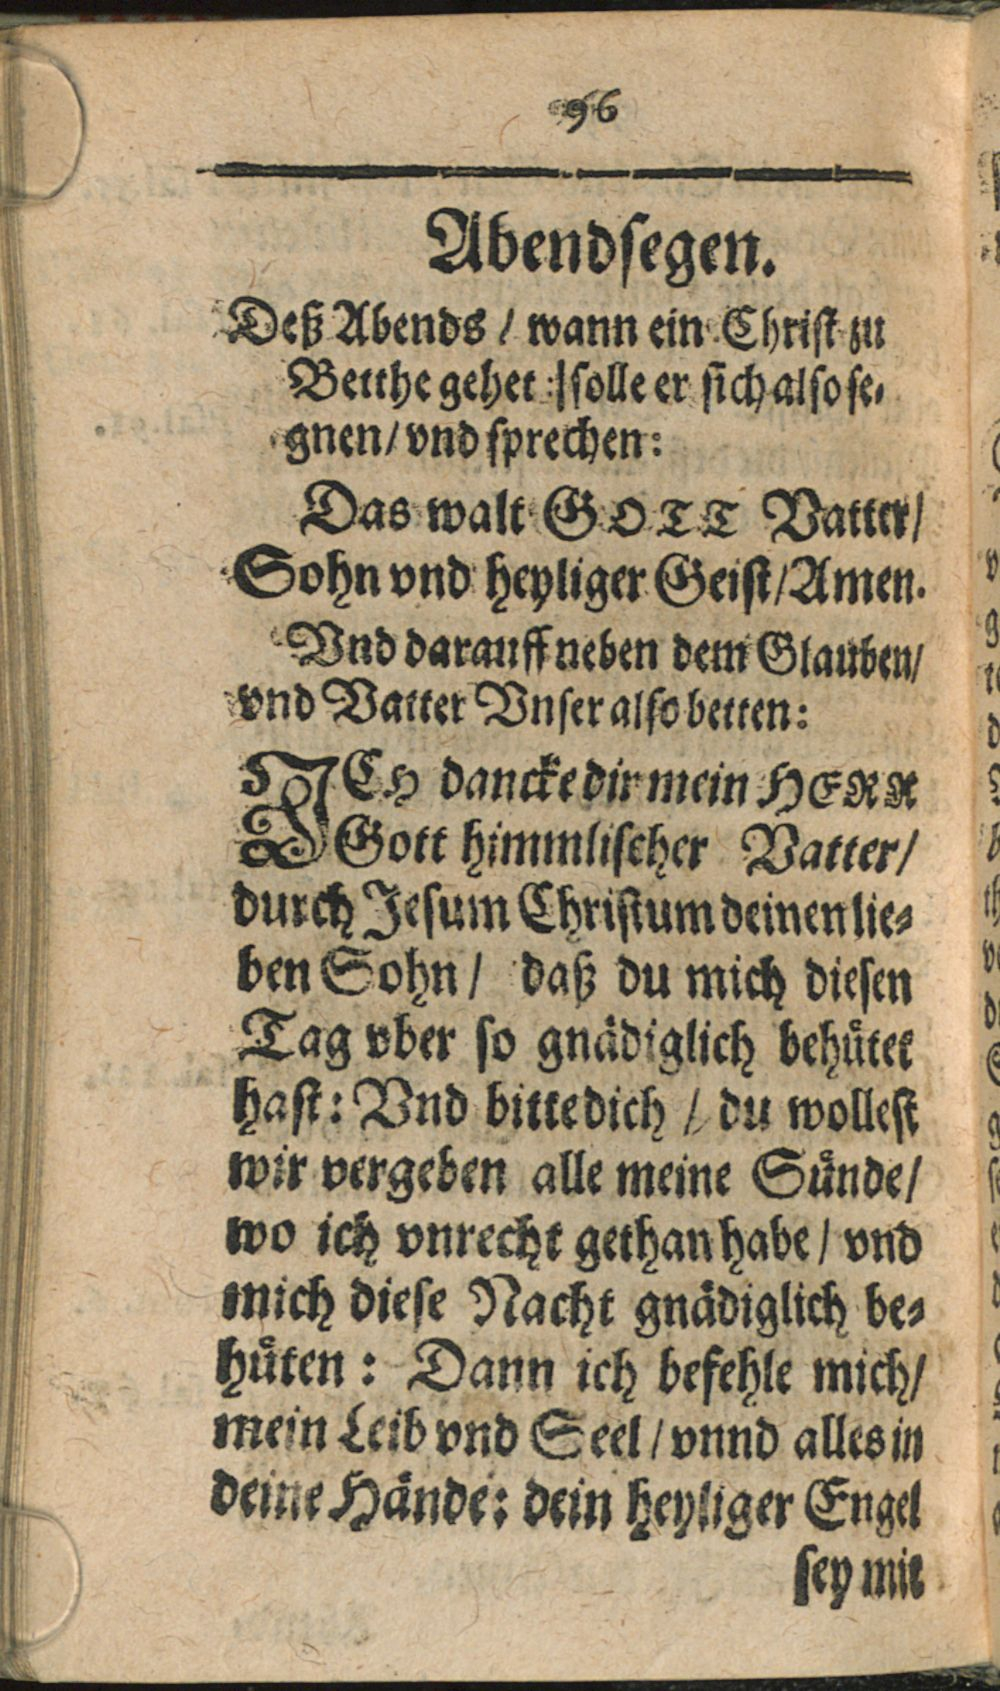 96
Abendſegen.
Deß Abends / wann ein Chriſt zu
Betthe gehet / ſolle er ſich alſo ſe-
gnen / vnd ſprechen:
Das walt GOTT Vatter/
Sohn vnd heyliger Geiſt/Amen.
Vnd darauff neben dem Glauben/
vnd Vatter Vnſer alſo betten:
JCH dancke dir mein HERR
Gott himmliſcher Vatter/
durch Jeſum Chriſtum deinen lie-
ben Sohn / daß du mich dieſen
Tag vber ſo gnädiglich behuͤtet
haſt: Vnd bitte dich / du wolleſt
wir vergeben alle meine Suͤnde/
wo ich vnrecht gethan habe / vnd
mich dieſe Nacht gnädiglich be-
huͤten: Dann ich befehle mich/
mein Leib vnd Seel / vnnd alles in
deine Hände: dein heyliger Engel
ſey mit